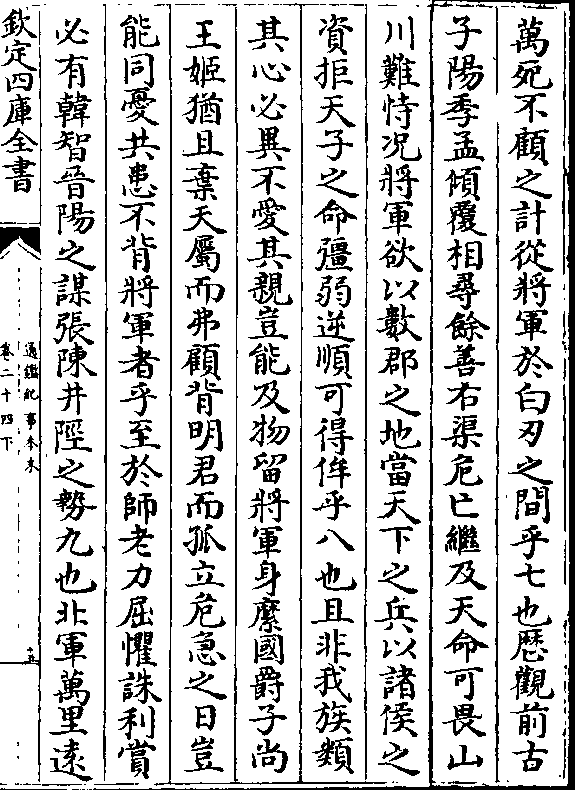 萬死不顧之計從將軍於白刃之間乎七也歴觀前古
子陽季孟傾覆相尋餘善右渠危亡繼及天命可畏山
川難恃况將軍欲以數郡之地當天下之兵以諸侯之
資拒天子之命彊弱逆順可得侔乎八也且非我族類
其心必異不愛其親豈能及物留將軍身縻國爵子尚
王姬猶且棄天屬而弗顧背明君而孤立危急之日豈
能同憂共患不背將軍者乎至於師老力屈懼誅利賞
必有韓智晉陽之謀張陳井陘之勢九也北軍萬里逺
欽定四庫全書
通鑑紀事本末
卷二十四下
十五